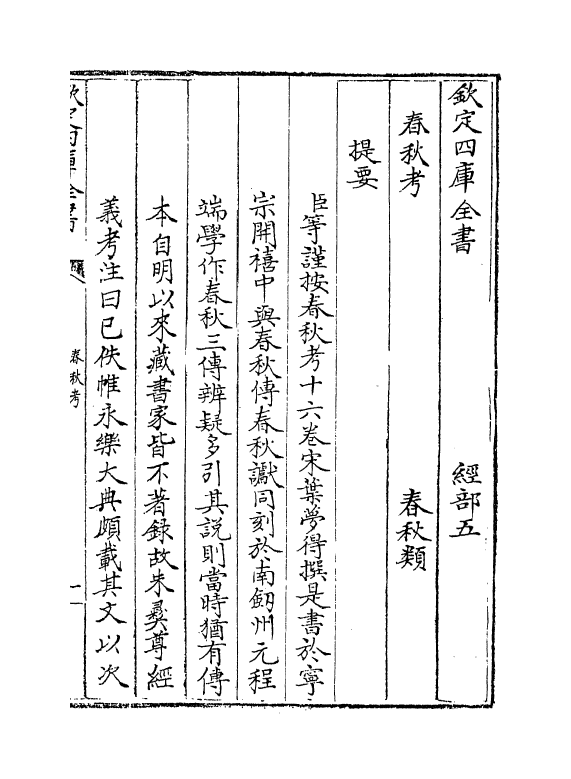 欽定四庫全書　經部五
春秋考　春秋類
提要
臣等謹按春秋考十六卷宋葉夢得撰是書於寧
宗開禧中與春秋傳春秋讞同刻於南劒州元程
端學作春秋三傳辨疑多引其説則當時猶有傳
本自明以來藏書家皆不著録故朱彝尊經
義考注曰已佚惟永樂大典頗載其文以次
欽定四庫全書
春秋考
一